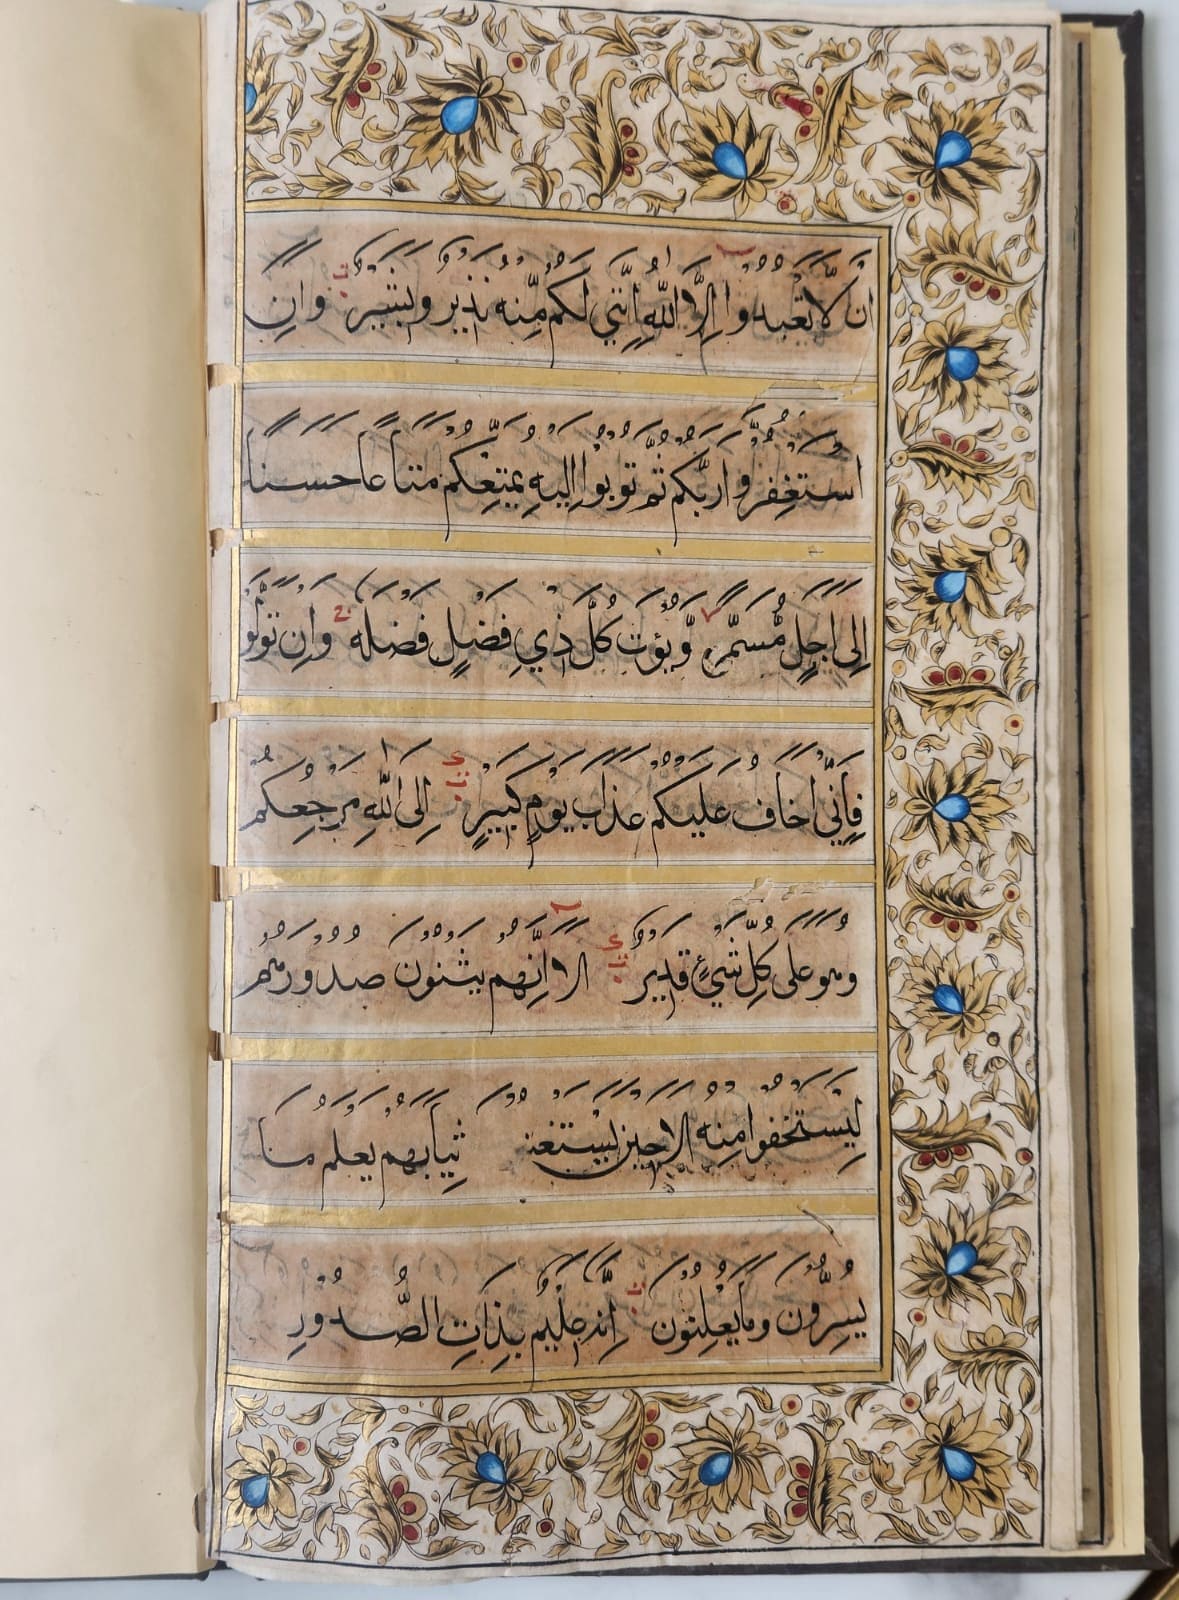 اَنْ لَّا تَعْبُدُوْا اِلَّا اللّٰهَ اِنَّنِيْ لَكُمْ مِّنْهُ نَذِيْرٌ وَّبَشِيْرٌ وَاَنِ
اسْتَغْفِرُوْا رَبَّكُمْ ثُمَّ تُوْبُوْا اِلَيْهِ يُمَتِّعْكُمْ مَتَاعًا حَسَنًا
اِلٰى اَجَلٍ مُّسَمًّى وَّيُؤْتِ كُلَّ ذِيْ فَضْلٍ فَضْلَهٗ وَاِنْ تَوَلَّوْا
فَاِنِّيْ اَخَافُ عَلَيْكُمْ عَذَابَ يَوْمٍ كَبِيْرٍ اِلَى اللّٰهِ مَرْجِعُكُمْ
وَهُوَ عَلٰى كُلِّ شَيْءٍ قَدِيْرٌ اَلَا اِنَّهُمْ يَثْنُوْنَ صُدُوْرَهُمْ
لِيَسْتَخْفُوْا مِنْهُ اَلَا حِيْنَ يَسْتَغْشُ ثِيَابَهُمْ يَعْلَمُ مَا
يُسِرُّوْنَ وَمَا يُعْلِنُوْنَ اِنَّهٗ عَلِيْمٌ بِذَاتِ الصُّدُوْرِ